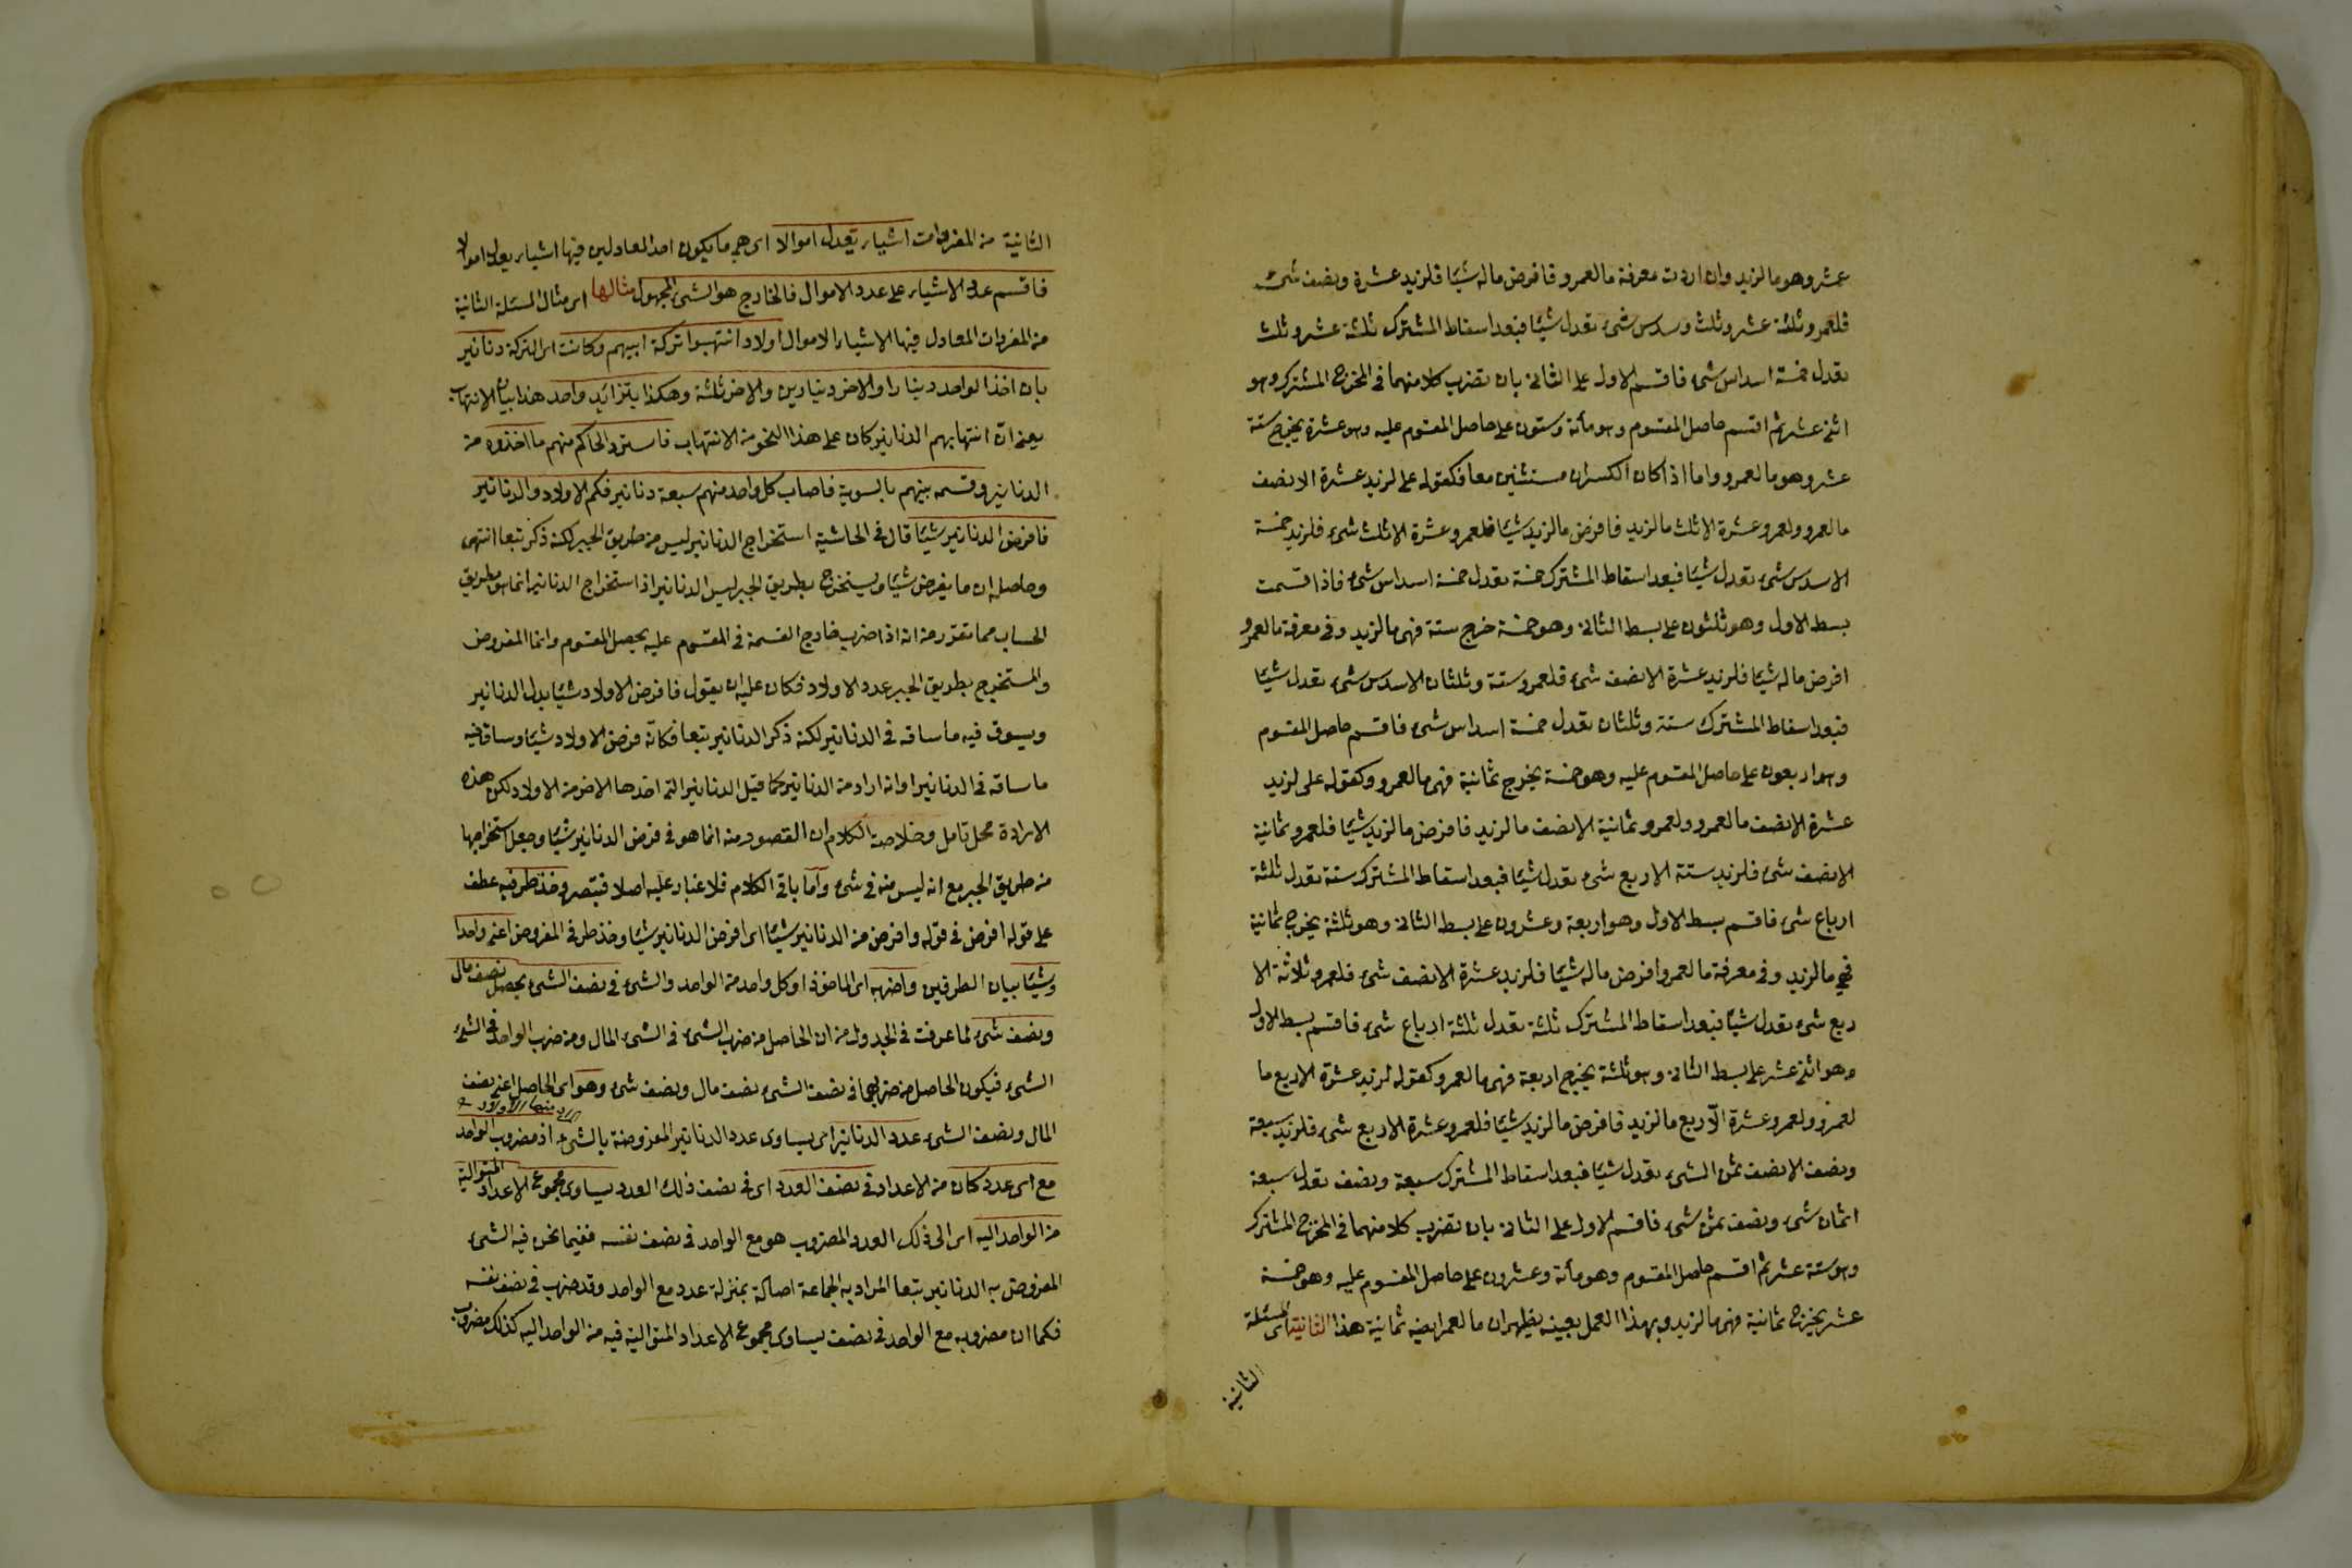 عشر وهو مالزيد وان اردت معرفة مالعمرو فافرض ماله شيئا فلزيد عشرة ونصف شئ
فلعمرو ثلثة عشر وثلث وسدس شئ يعدل شيئا فبعد اسقاط المشترك ثلثة عشر وثلث
يعدل خمسة اسداس شئ فاقسم الاول على الثانى بان تضرب كلا منهما فى المخرج المشترك وهو
اثنى عشر ثم اقسم حاصل المقسوم وهو مأة وستون على حاصل المقسوم عليه وهو عشرة يخرج ستة
عشر وهو مالعمرو واما اذا كان الكسران مستثنين معا فكقوله على لزيد عشرة الا نصف
مالعمرو ولعمرو عشرة الا ثلث مالزيد فافرض مالزيد شيئا فلعمرو عشرة الا ثلث شئ فلزيد خمسة
الا سدس شئ يعدل شيئا فبعد اسقاط المشترك خمسة يعدل خمسة اسداس شئ فاذا قسمت
بسط الاول وهو ثلثون على بسط الثانى وهو خمسة خرج ستة فهى مالزيد وفى معرفة مالعمرو
افرض ماله شيئا فلزيد عشرة الا نصف شئ فلعمرو ستة وثلثان الا سدس شئ يعدل شيئا
فبعد اسقاط المشترك ستة وثلثان يعدل خمسة اسداس شئ فاقسم حاصل المقسوم
وهو اربعون على حاصل المقسوم عليه وهو خمسة يخرج ثمانية فهى مالعمرو وكقوله على لزيد
عشرة الا نصف مالعمرو ولعمرو ثمانية الا نصف مالزيد فافرض مالزيد شيئا فلعمرو ثمانية
الا نصف شئ فلزيد ستة الا ربع شئ يعدل شيئا فبعد اسقاط المشترك ستة يعدل ثلثة
ارباع شئ فاقسم بسط الاول وهو اربعة وعشرون على بسط الثانى وهو ثلثة يخرج ثمانية
فهى مالزيد وفى معرفة مالعمرو افرض ماله شيئا فلزيد عشرة الا نصف شئ فلعمرو ثلاثة الا
ربع شئ يعدل شيئا فبعد اسقاط المشترك ثلثة يعدل ثلثة ارباع شئ فاقسم بسط الاول
وهو اثنى عشر على بسط الثانى وهو ثلثة يخرج اربعة فهى مالعمرو كقوله لزيد عشرة الا ربع ما
لعمرو ولعمرو عشرة الّا ربع مالزيد فافرض مالزيد شيئا فلعمرو عشرة الا ربع شئ فلزيد سبعة
ونصف الا نصف ثمن الشئ يعدل شيئا فبعد اسقاط المشترك سبعة ونصف يعدل سبعة
اثمان شئ ونصف ثمن شئ فاقسم الاول على الثانى بان تضرب كلا منهما فى المخرج المشترك
وهو ستة عشر ثم اقسم حاصل المقسوم وهو مأة وعشرون على حاصل المقسوم عليه وهو خمسة
عشر يخرج ثمانية فهى مالزيد وبهذا العمل بعينه يظهر ان مالعمرو ايضا ثمانية هذا الثانية اى المسئلة
الثانية
الثانية من المفردات اشياء يعدل اموالا اى هى ما يكون احد العادلين فيها اشياء يعدل اموالا
فاقسم عدد الاشياء على عدد الاموال فالخارج هو الشئ المجهول مثالها اى مثال المسئلة الثانية
من المفردات المعادل فيها الاشياء الاموال اولاد انتهبوا تركة ابيهم وكانت اى التركة دنانير
بان اخذ الواحد دينارا والاخر دينارين والاخر ثلثة وهكذا بتزائد واحد هذا بيان الانتهاب
يعنى انّ انتهابهم الدنانير كان على هذا النحو من الانتهاب فاسترد الحاكم منهم ما اخذوه من
الدنانير وقسمه بينهم بالسوية فاصاب كل واحد منهم سبعة دنانير فكم الاولاد والدنانير
فافرض الدنانير شيئا قال فى الحاشية استخراج الدنانير ليس من طريق الجبر لكنه ذكر تبعا انتهى
وحاصله ان ما يفرض شيئا ويستخرج بطريق الجبر ليس الدنانير اذ استخراج الدنانير انما هو بطريق
الحساب مما تقرر من انه اذا ضرب خارج القسمة فى المقسوم عليه يحصل المقسوم وانما المفروض
والمستخرج بطريق الجبر عدد الاولاد فكان عليه ان يقول فافرض الاولاد شيئا بدل الدنانير
ويسوق فيه ما ساقه فى الدنانير لكنه ذكر الدنانير تبعا فكانّه فرض الاولاد شيئا وساق فيه
ما ساقه فى الدنانير او انه اراد من الدنانير كما قيل الدنانير التى اخذها الاخر من الاولاد لكن هذه
الارادة محل تامل وخلاصة الكلام ان القصور منه انما هو فى فرض الدنانير شيئا وجعل استخراجها
من طريق الجبر مع انه ليس منه فى شئ وامّا باقى الكلام فلا غبار عليه اصلا فتبصر وخذ طرفيه عطف
على قوله افرض فى قوله وافرض من الدنانير شيئا اى افرض الدنانير شيئا وخذ طرفى المفروض اعنى واحدا
وشيئا بيان الطرفين واضربه اى الماخوذ او كل واحد من الواحد والشئ فى نصف الشئ يحصل نصف مال
ونصف شئ لما عرفت فى الجدول من ان الحاصل من ضرب الشئ فى الشئ المال ومن ضرب الواحد فى الشئ
الشئ فيكون الحاصل من ضربهما فى نصف الشئ نصف مال ونصف شئ وهو اى الحاصل اعنى نصف
المال ونصف الشئ عدد الدنانير اى يساوى عدد الدنانير المفروضة بالشئ اذ مضروب الواحد
مع اى عدد كان من الاعداد فى نصف العدد اى فى نصف ذلك العدد يساوى مجموع الاعداد المتوالية
من الواحد اليه اى الى ذلك العدد المضروب هو مع الواحد فى نصف نفسه ففيما نحن فيه الشئ
المفروض به الدنانير تبعا المراد به الجماعة اصالة بمنزلة عدد مع الواحد وقد ضرب فى نصف نفسه
فكما ان مضروبه مع الواحد فى نصف يساوى مجموع الاعداد المتوالية فيه من الواحد اليه كذلك مضروب